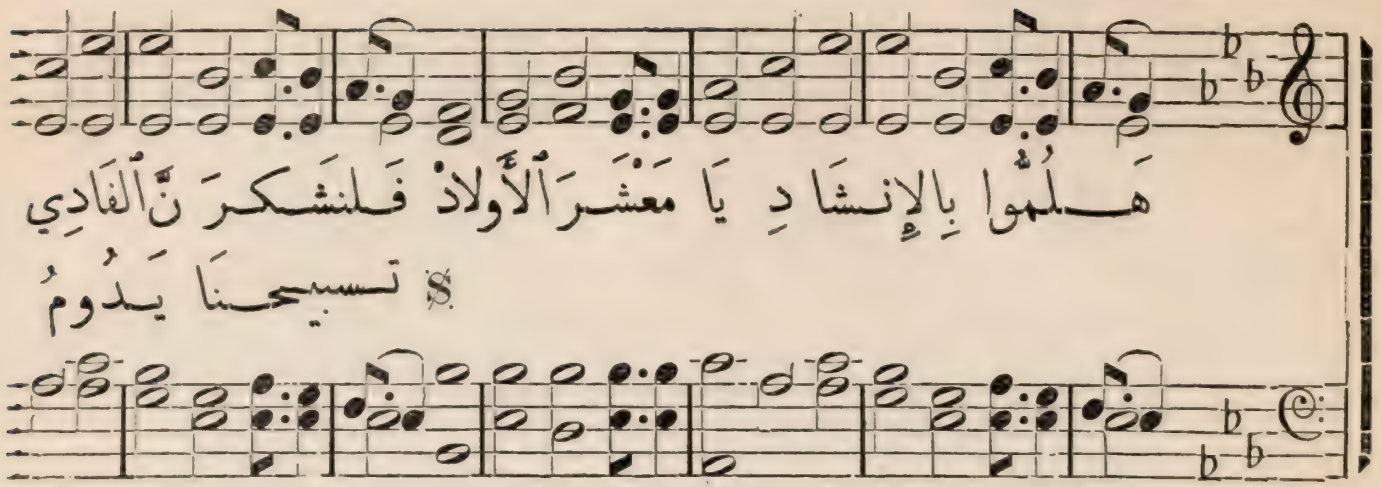 هَـلُمُّوا بِالإِنـشَا دِ يَا مَعْشَـرَ ٱلْأَولادْ فَـلنَشـكـرَ نَّ ٱلفَادِي
تـسبيحـنَا يَـدُومُ